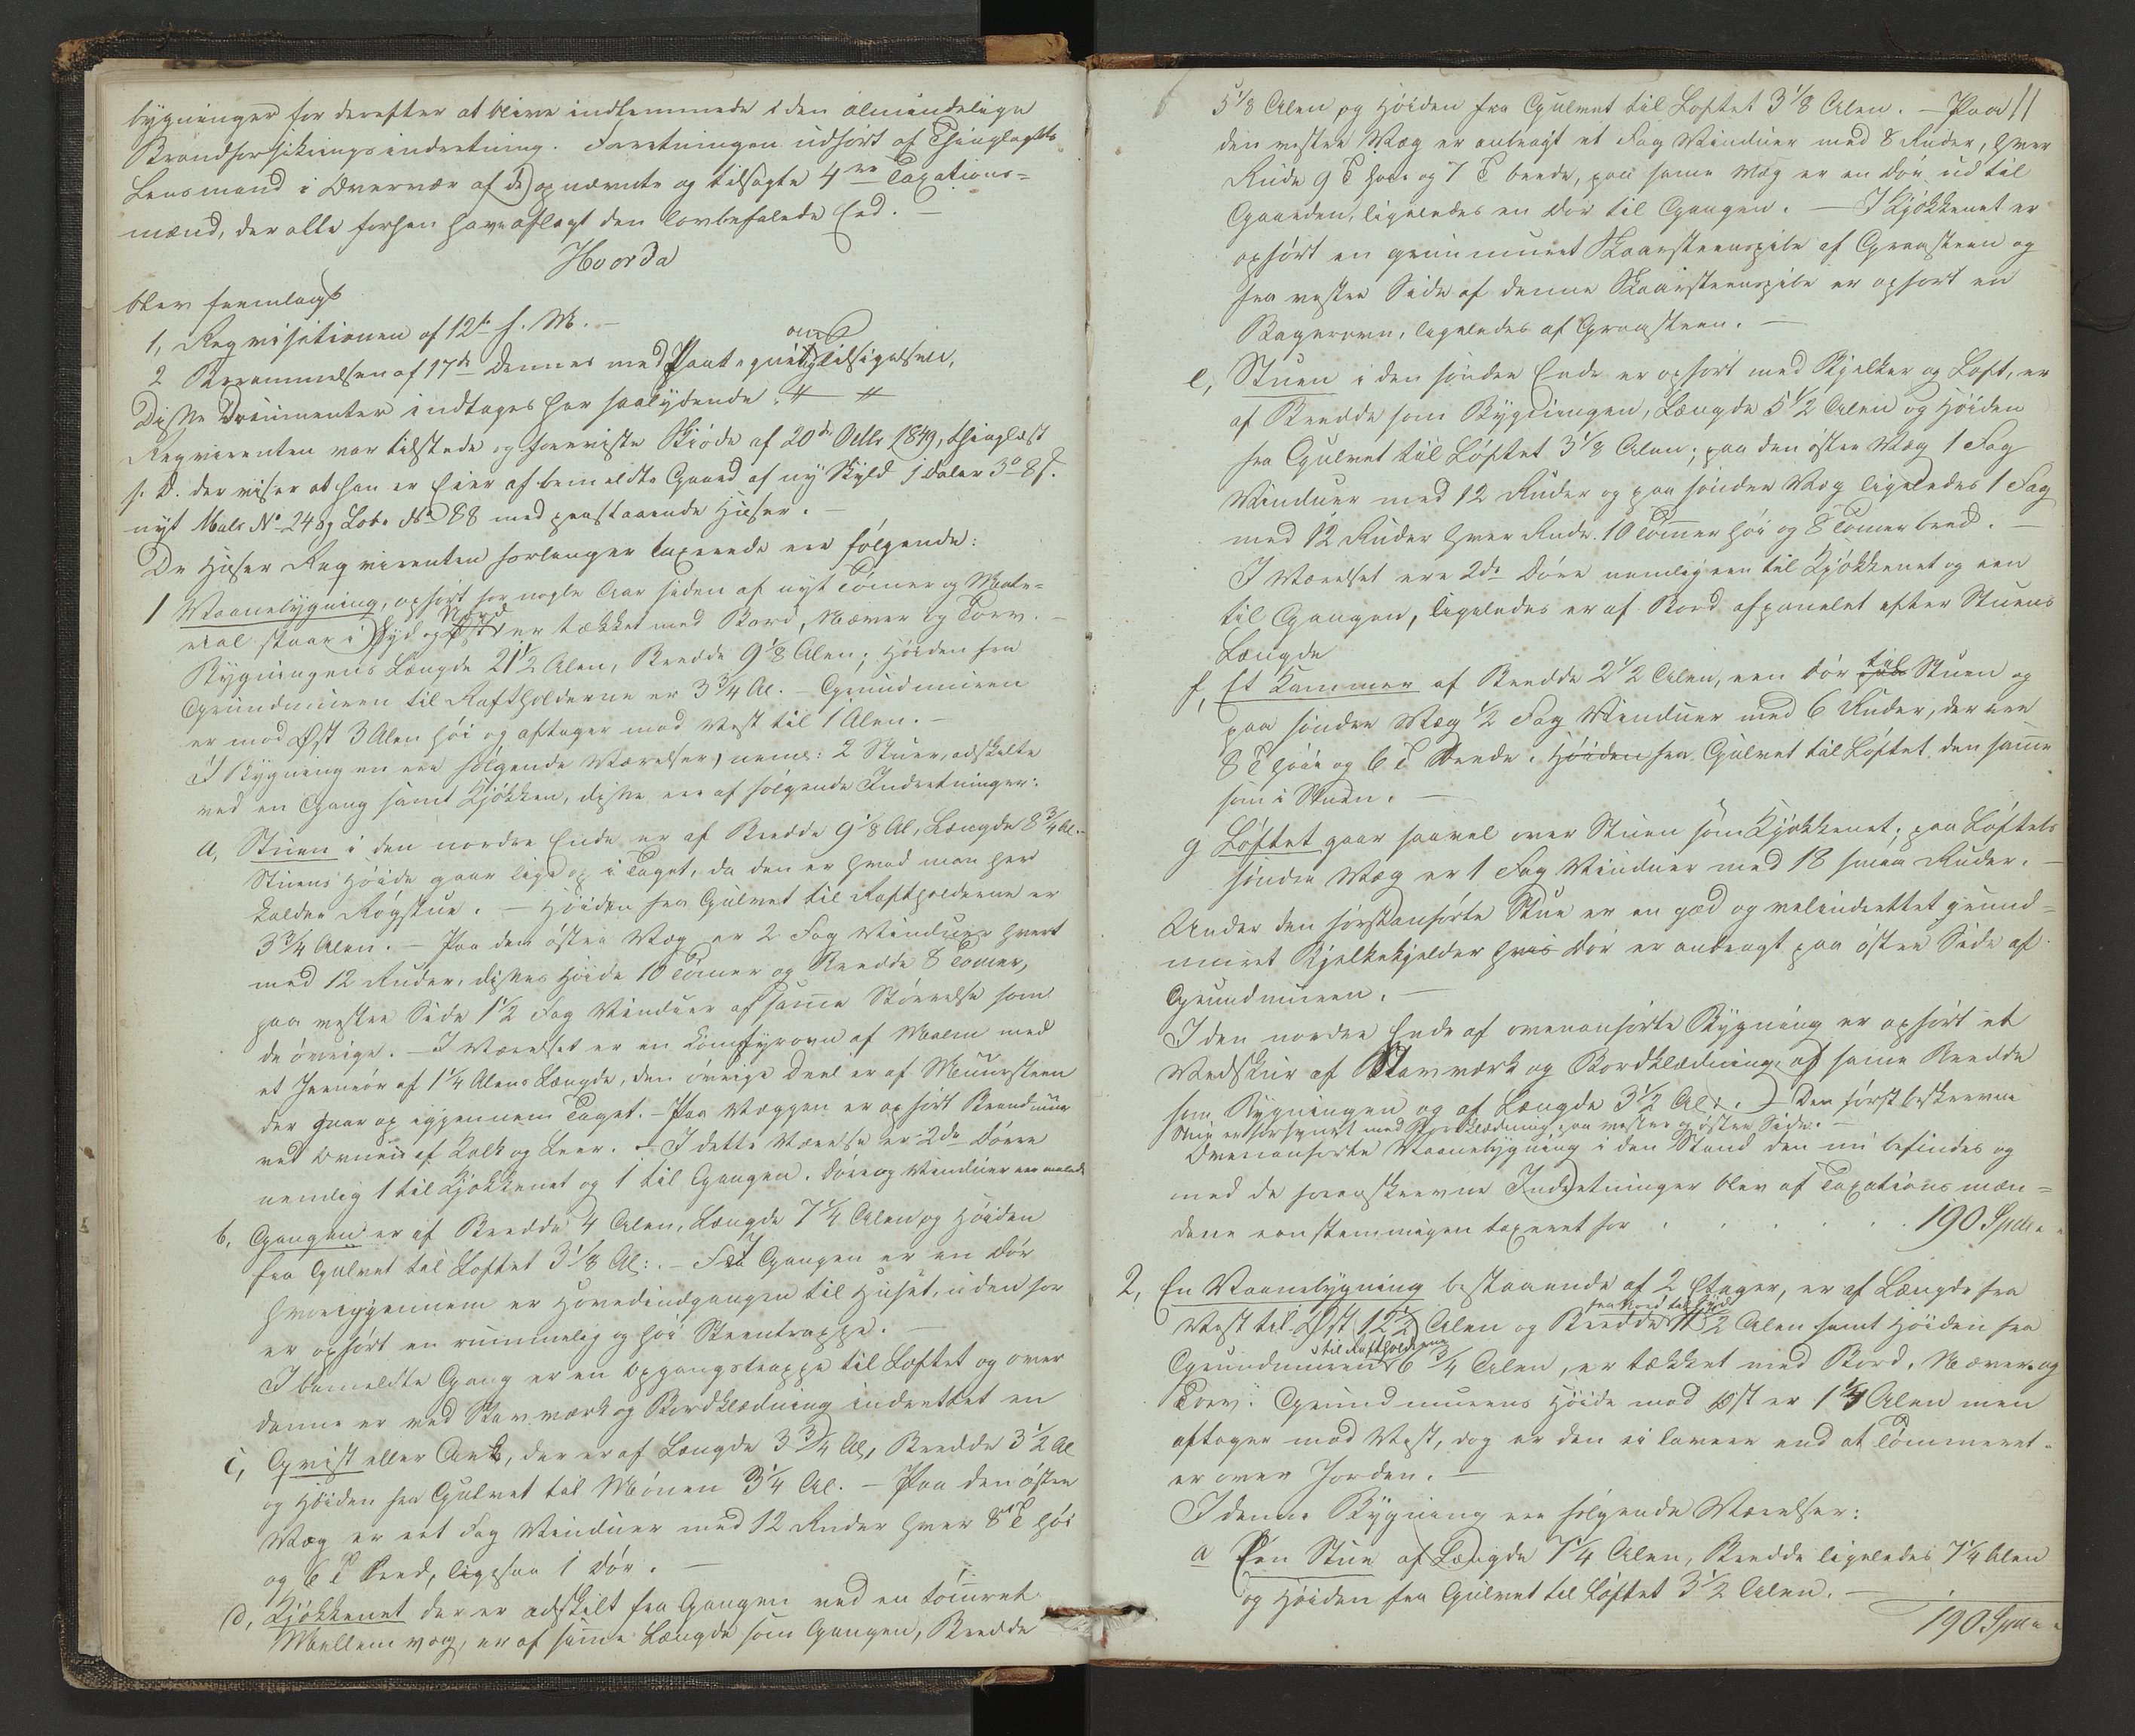 bygninger for derefter at blive indlemmede i den almindelige
Brandforsikringsindretning. Forretningen udført af Thinglagets
Lensmand i Overvær af de opnævnte og tilsagte 4re Taxations-
mænd, der alle forhen have aflagt den lovbefalede Eed. –
Hvorda
blev fremlagt
1, Reqvisitionen af 12te f. M. –
2 Berammelsen af 17de dennes med Paategning om Tilsigelsen,
Disse Documenter indtages her saalydende: # #
Reqvirenten var tilstede og foreviste Skjøde af 20de Octbr 1849, thinglæst
s. D. der viser at han er Eier af bemeldte Gaard af ny Skyld 1 Daler 3 o 8 s.
nyt Matr. No 24 og Løbe No 88 med paastaaende Huser. –
De Huser Reqvirenten forlanger taxerede ere følgende:
1 Vaanebygning, opført for nogle Aar siden af nyt Tømmer og Mate-
rial staar i Syd og Nord, er tækket med Bord, Næver og Torv. –
Bygningens Længde 21 1/2 Alen, Bredde 9 1/8 Alen; Høiden fra
Grundmuren til Raftholderne er 3 3/4 Al. – Grundmuren
er mod Øst 3 Alen høi og aftager mod Vest til 1 Alen. –
I Bygningen ere følgende Værelser, neml: 2 Stuer, adskilte
ved en Gang samt Kjøkken, disse ere af følgende Indretninger:
a, Stuen i den nordre Ende er af Bredde 9 1/8 Al, Længde 8 3/4 Al. –
Stuens Høide gaar lige op i Taget, da den er hvad man her
kalder Røgstue. – Høiden fra Gulvet til Raftholderne er
3 3/4 Alen. – Paa den østre Væg er 2 Fag Vinduer hvert
med 12 Ruder, disses Høide 10 Tommer og Bredde 8 Tommer,
paa vestre Side 1 1/2 Fag Vinduer af samme Størrelse som
de øvrige. – I Værelset er en Komfyrovn af Malm med
et Jernrør af 1 1/4 Alens Længde, den øvrige Deel er af Muursteen
der gaar op igjennem Taget. – Paa Væggen er opført Brandmuur
ved Ovnen af Kalk og Leer. – I dette Værelse er 2de Dørre
nemlig 1 til Kjøkkenet og 1 til Gangen. Døre og Vinduer ere malede
b, Gangen er af Bredde 4 Alen, Længde 7 1/4 Alen og Høiden
fra Gulvet til Loftet 3 1/8 Al:. – I Gangen er en Dør
hvorigjennem er Hovedindgangen til Huset, udenfor
er opført en rummelig og høi Steentrappe. –
I bemeldte Gang er en Opgangstrappe til Loftet og over
denne er ved Stavværk og Bordklædning indrettet en
c, Qvist eller Ark, der er af Længde 3 3/4 Al, Bredde 3 1/2 Al
og Høiden fra Gulvet til Mønen 3 1/4 Al. – Paa den østre
Væg er eet Fag Vinduer med 12 Ruder hver 8 T høi
og 6 T Bred, ligesaa 1 Dør. –
d, Kjøkkenet der er adskilt fra Gangen ved en tømret
Mellemvæg, er af samme Længde som Gangen, Bredde
11
5 1/8 Alen og Høiden fra Gulvet til Loftet 3 1/8 Alen. – Paa
den vestre Væg er anbragt et Fag Vinduer med 8 Ruder, hver
Rude 9 T høie og 7 T brede, paa samme Væg er en Dør ud til
Gaarden, ligeledes en Dør til Gangen. – I Kjøkkenet er
opført en grundmuret Skaarsteenspibe af Graasteen og
fra vestre Side af denne Skaarsteenspibe er opført en
Bagerovn, ligeledes af Graasteen. –
e, Stuen i den søndre Ende er opført med Bjelker og Loft, er
af Bredde som Bygningen, Længde 5 1/2 Alen og Høiden
fra Gulvet til Løftet 3 1/8 Alen; paa den østre Væg 1 Fag
Vinduer med 12 Ruder og paa søndre Væg ligeledes 1 Fag
med 12 Ruder hver Rude 10 Tommer høi og 8 Tommer bred. –
I Værelset ere 2de Døre nemlig een til Kjøkkenet og een
til Gangen, ligeledes er af Bord afpanelet efter Stuens
Længde
f, Et Kammer af Bredde 2 1/2 Alen, een Dør til Stuen og
paa søndre Væg 1/2 Fag Vinduer med 6 Ruder, der ere
8 T høie og 6 T Brede. Høiden fra Gulvet til Løftet den samme
som i Stuen. –
g Løftet gaar saavel over Stuen som Kjøkkenet; paa Løftets
søndre Væg er 1 Fag Vinduer med 18 smaa Ruder. –
Under den førstanførte Stue er en god og velindrettet grund-
muret Bjelkekjelder hvis Dør er anbragt paa østre Side af
Grundmuren. –
I den nordre Ende af ovenanførte Bygning er opført et
Vedskur af Stavværk og Bordklædning af samme Bredde
som Bygningen og af Længde 3 1/2 Al:. – Den først beskrevne
Stue er forsynet med Bordklædning paa vestre og østre Side. –
Ovenanførte Vaanebygning i den Stand den nu befindes og
med de foranskrevne Indretninger blev af Taxationsmæn-
dene eenstemmigen taxeret for . . . . . . 190 Spdlr. "
2, En Vaanebygning bestaaende af 2 Etager, er af Længde fra
Vest til Øst 12 1/2 Alen og Bredde fra Nord til Syd 11 1/2 Alen samt Høiden fra
Grundmuren til Raftholderne 6 3/4 Alen, er tækket med Bord, Næver og
Torv. Grundmurens Høide mod Øst er 1 1/4 Alen men
aftager mod Vest, dog er den ei lavere end at Tømmeret
er over Jorden. –
I denne Bygning ere følgende Værelser:
a Een Stue af Længde 7 1/4 Alen, Bredde ligeledes 7 1/4 Alen
og Høiden fra Gulvet til Løftet 3 1/2 Alen. –
190 Spdlr "